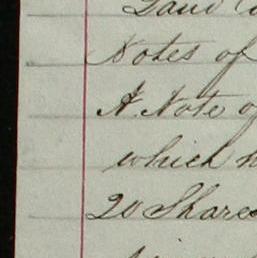 Notes of
A Note of
which h
20 Shares